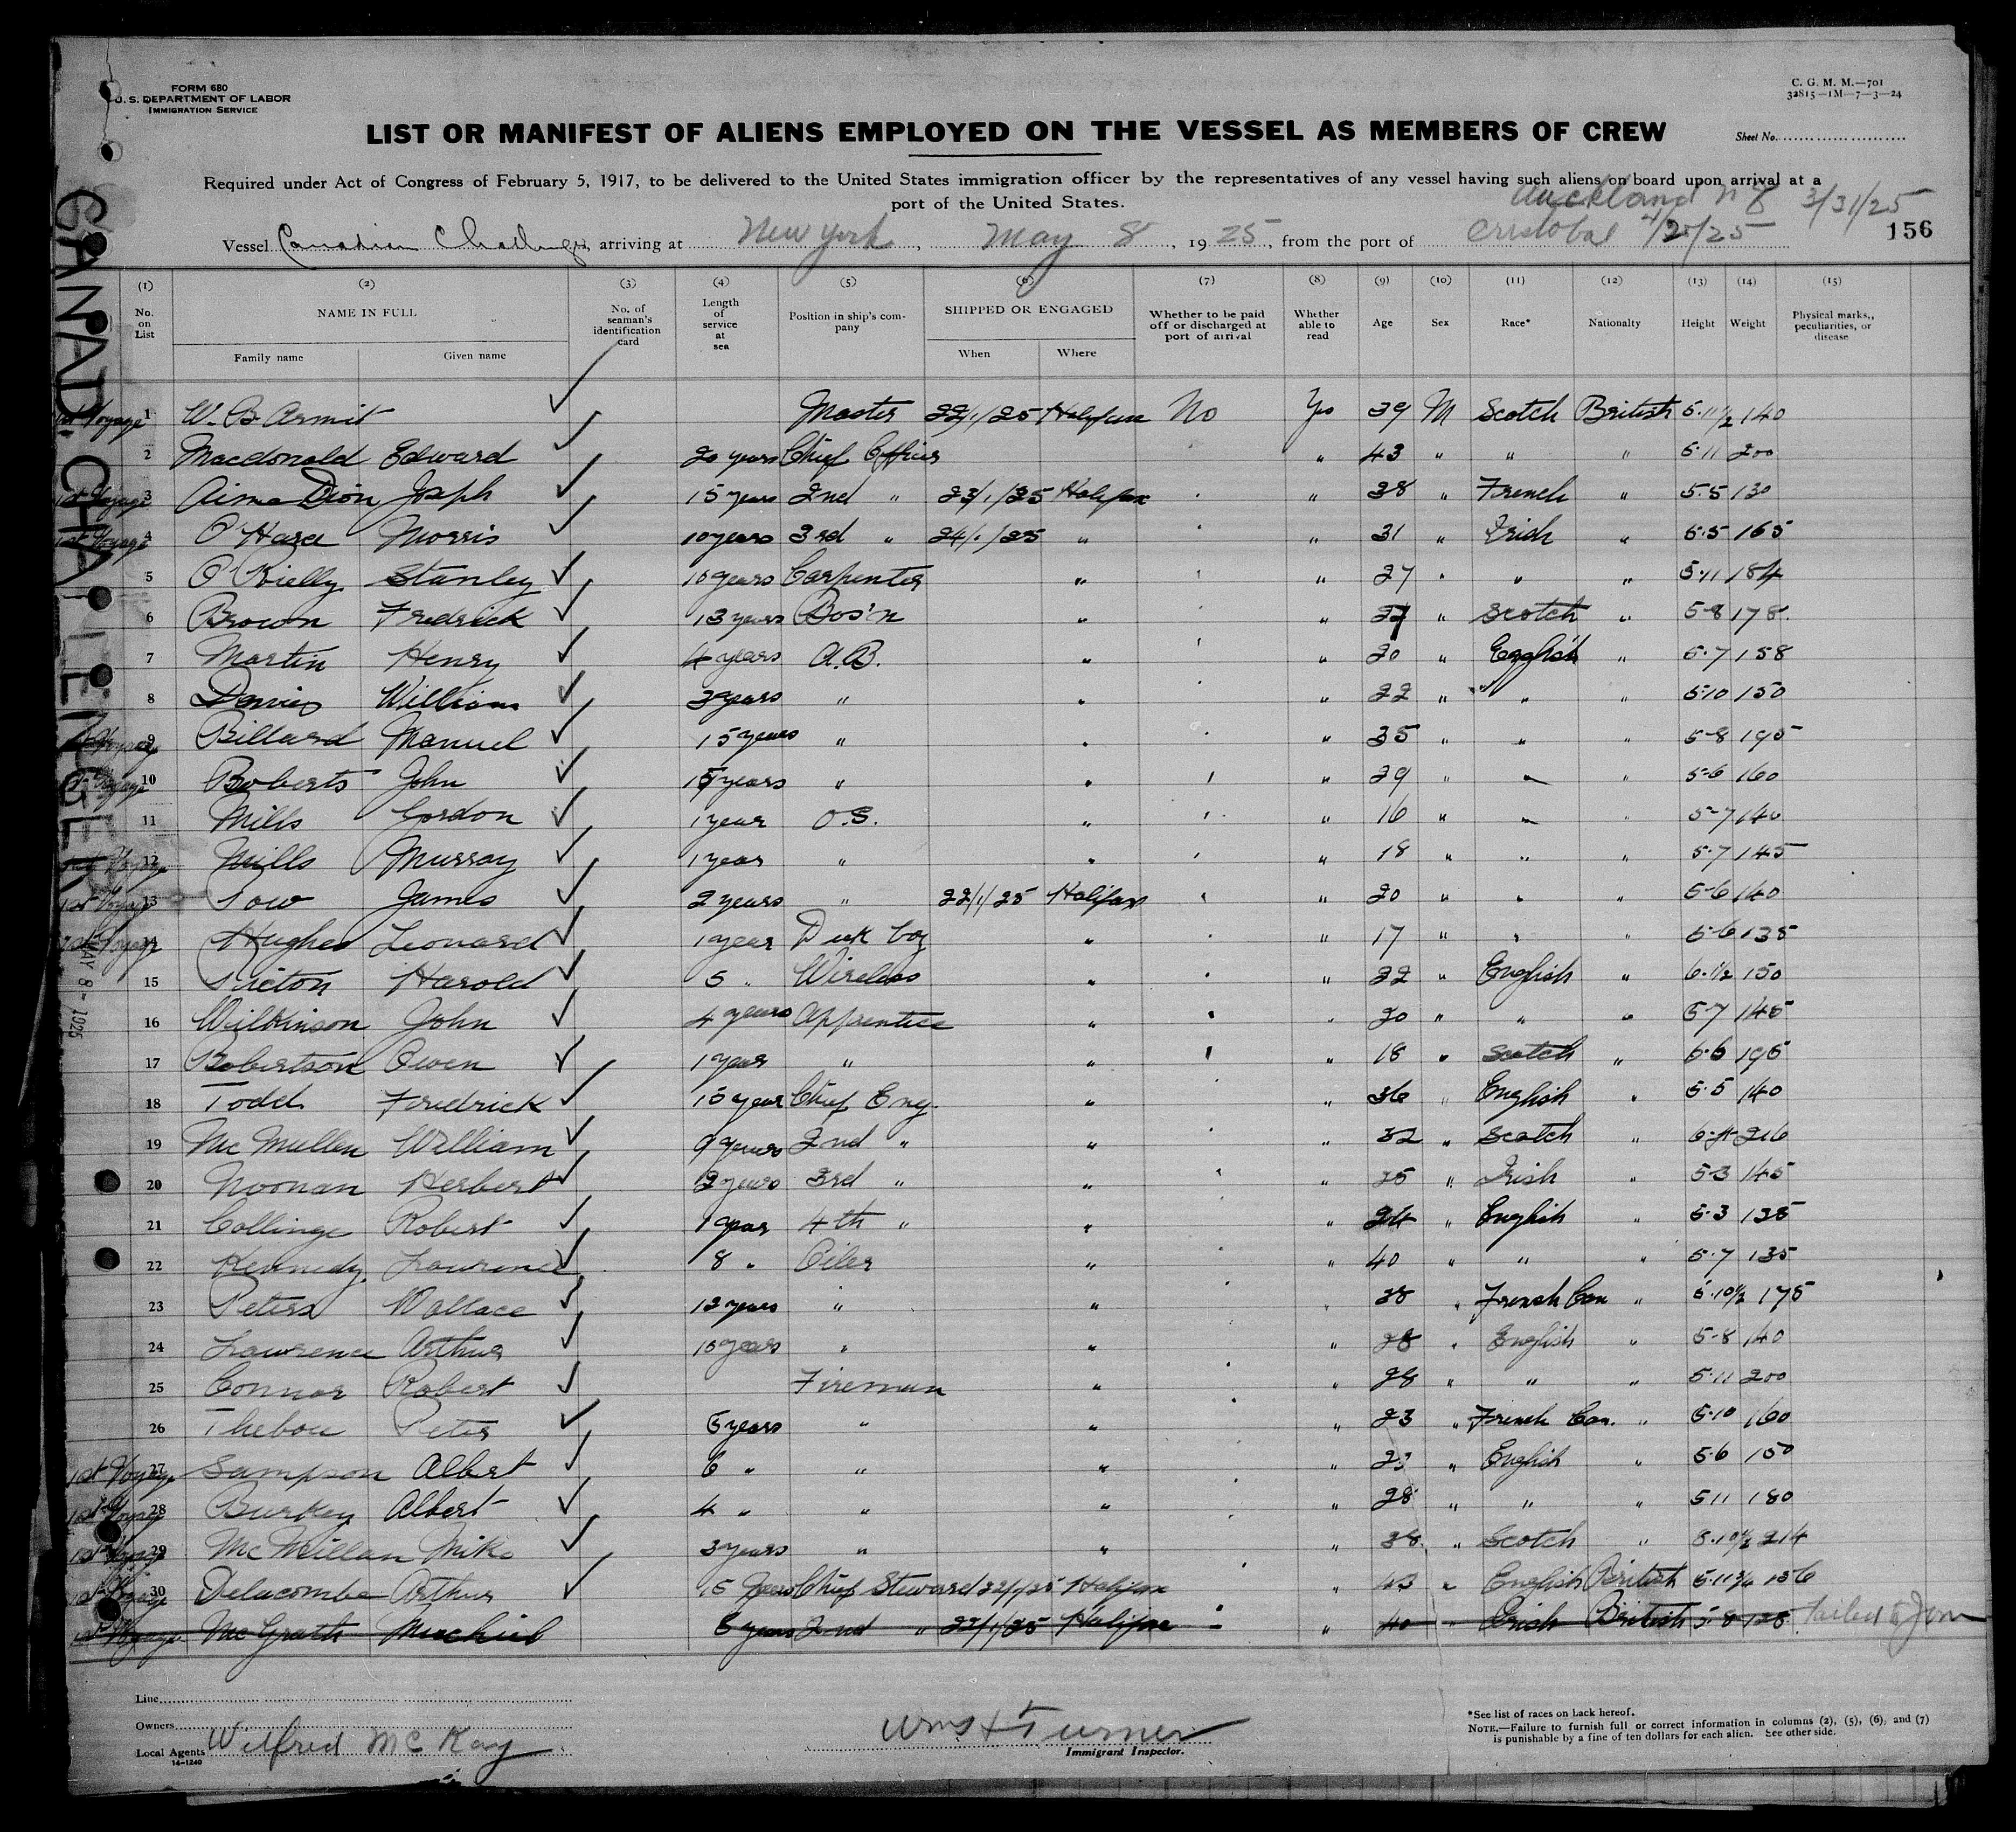 FORM 680
U. S. DEPARTMENT OF LABOR
IMMIGRATION SERVICE
C. G. M. M.—701
32815—1M—7—3—24
LIST OR MANIFEST OF ALIENS EMPLOYED ON THE VESSEL AS MEMBERS OF CREW
Sheet No.
Required under Act of Congress of February 5, 1917, to be delivered to the United States immigration officer by the representatives of any vessel having such aliens on board upon arrival at a
port of the United States.
Auckland N Z 3/31/25
Vessel Canadian Challenger, arriving at New York, May 8, 1925, from the port of Cristobal 4/25/25
156
CANAD. CHALLENGER
MAY 8- 1925
(1) (2) (3) (4) (5) (6) (7) (8) (9) (10) (11) (12) (13) (14) (15)
No. on List NAME IN FULL Family name Given name No. of seaman's identification card Length of service at sea Position in ship's company SHIPPED OR ENGAGED When Where Whether to be paid off or discharged at port of arrival Whether able to read Age Sex Race* Nationalty Height Weight Physical marks, peculiarities, or disease
1st Voyage 1 W. B Armit Master 22/1/25 Halifax No Yes 39 M Scotch British 5.11½ 140
2 Macdonald Edward 20 years Chief Officer " 43 " " " 5.11 200
1st Voyage 3 Aime Dion Joseph 15 years 2nd " 23/1/25 Halifax " 38 " French " 5.5 130
1st Voyage 4 O'Hara Morris 10 years 3rd " 24/1/25 " " 31 " Irish " 5.5 165
5 O'Rielly Stanley 10 years Carpenter " " 27 " " " 5.11 184
6 Brown Fredrick 13 years Bos'n " " 27 " Scotch " 5-8 178
7 Martin Henry 4 years A.B. " " 20 " English " 5.7 158
8 Davies William 3 years " " " 22 " " " 5.10 150
1st Voyage 9 Billard Manuel 15 years " " " 35 " " " 5-8 195
1st Voyage 10 Roberts John 15 years " " " 29 " " " 5-6 160
11 Mills Gordon 1 year O.S. " " 16 " " " 5-7 140
1st Voyage 12 Mills Murray 1 year " " " 18 " " " 5.7 145
1st Voyage 13 Tow James 2 years " 22/1/25 Halifax " 20 " " " 5-6 140
1st Voyage 14 Hughes Leonard 1 year Deck boy " " 17 " " " 5-6 135
15 Harold 5 " Wireless " " 22 " English " 6.½ 150
16 Wilkinson John 4 years Apprentice " " 20 " " " 5-7 145
17 Robertson Owen 1 year " " " 18 " Scotch " 195
18 Todd Fredrick 15 year Chief Eng. " " 36 " English " 5.5 140
19 Mc Mullen William 9 years 2nd " " " 32 " Scotch " 216
20 Noonan Herbert 2 years 3rd " " " 25 " Irish " 5.3 145
21 Collinge Robert 1 year 4th " " " 24 " English " 5.3 125
22 Kennedy Lawrence 8 " Oiler " " 40 " " " 5.7 135
23 Peters Wallace 12 years " " " 38 " French Can " 5.10½ 175
24 Lawrence Arthur 10 years " " " 28 " English " 5-8 140
25 Connor Robert Fireman " " 28 " " " 5.11 200
26 Thebou Peter 5 years " " " 23 " French Can. " 5.10 160
1st Voyage 27 Sampson Albert 6 " " " " 23 " English " 5.6 150
1st Voyage 28 Burkey Albert 4 " " " " 28 " " " 5 11 180
1st Voyage 29 Mc Millan Mike 3 years " " " 38 " Scotch " 214
1st Voyage 30 Delacombe Arthur 15 years Chief Steward 22/1/25 Halifax " 43 " English British 5.11¾ 156
1st Voyage Mc Grath Michiel 5 years 2nd " 22/1/25 Halifax " 40 " Irish British 5.8 125 failed to Join
Line
Owners
Local Agents Wilfred McKay
14-1240
Wm H Turner
Immigrant Inspector.
*See list of races on back hereof.
NOTE.—Failure to furnish full or correct information in columns (2), (5), (6), and (7)
is punishable by a fine of ten dollars for each alien. See other side.